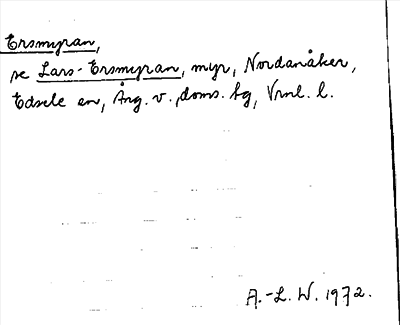 Ersmyran,
se Lars-Ersmyran, myr, Nordanåker,
Edsele sn, Ång. v. doms. tg, Vrnl. l.
A.-L. W. 1972.